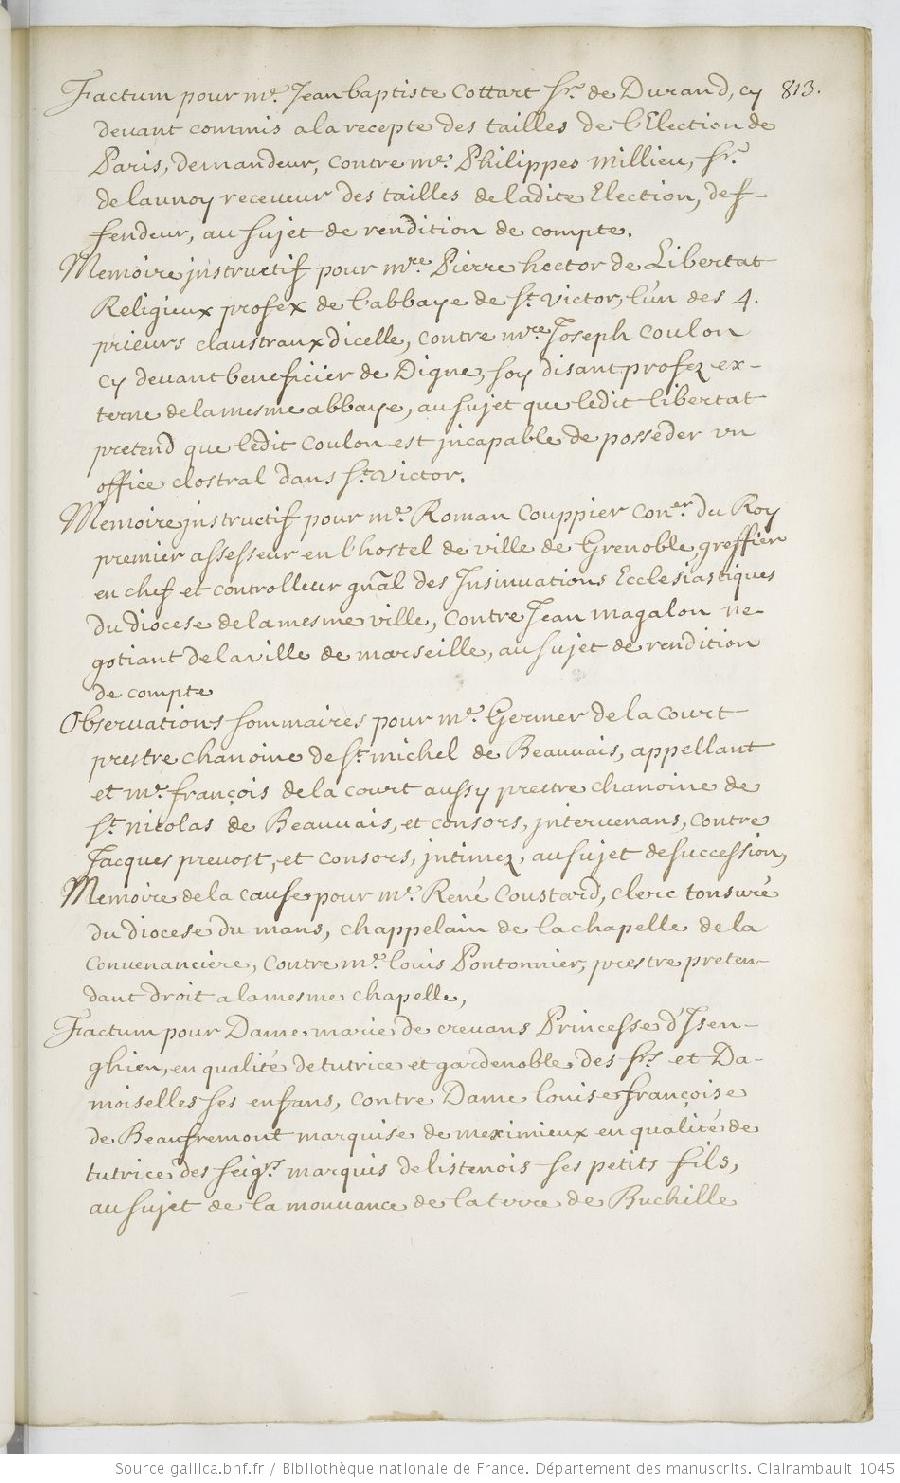 Factum pour mr. Jean baptiste Cottart Sr. de Durand, cy 813.
devant commis a la recepte des tailles de l'Election de
Paris, demandeur, contre mr. Philippes millieu, Sr.
de launoy receveur des tailles de ladite Election, def-
fendeur, au sujet de rendition de compte.
Memoire instructif pour mre. Pierre hector de Libertat
Religieux profex de l'abbaye de St. victor, l'un des 4.
prieurs claustraux dicelle, contre mre Joseph Coulon
cy devant beneficier de Digne, soy disant profez ex-
terne de la mesme abbaye, au sujet que ledit libertat
pretend que ledit Coulon est incapable de posseder un
office clostral dans St. victor.
Memoire instructif pour mr. Roman Couppier Coner. du Roy
premier assesseur en l'hostel de ville de Grenoble, greffier
en chef et controlleur gnãl des Insinuations Ecclesiastiques
du diocese de la mesme ville, contre Jean magalon ne-
gotiant de la ville de marseille, au sujet de rendition
de compte
Observations sommaires pour mr. Germer de la Court
prestre chanoine de St. michel de Beauvais, appellant
et mr. françois de la court aussy prestre chanoine de
St. nicolas de Beauvais, et consors, intervenans, contre
Jacques prevost, et consors, intimez, au sujet de succession,
Memoire de la cause pour mr. René Coustard, clerc tonsuré
du diocese du mans, chappelain de la chapelle de la
Convenanciere, contre mr. louis Pontonnier, prestre preten-
dant droit a la mesme chapelle,
Factum pour Dame marie de crevans Princesse d'Isen-
ghien, en qualité de tutrice et gardenoble des Srs. et Da-
moiselles ses enfans, contre Dame louise françoise
de Beaufremont marquise de meximieux en qualité de
tutrice des seigrs. marquis de listenois ses petits fils,
au sujet de la mouvance de la terre de Buchille
Source gallica.bnf.fr / Bibliothèque nationale de France. Département des manuscrits. Clairambault 1045